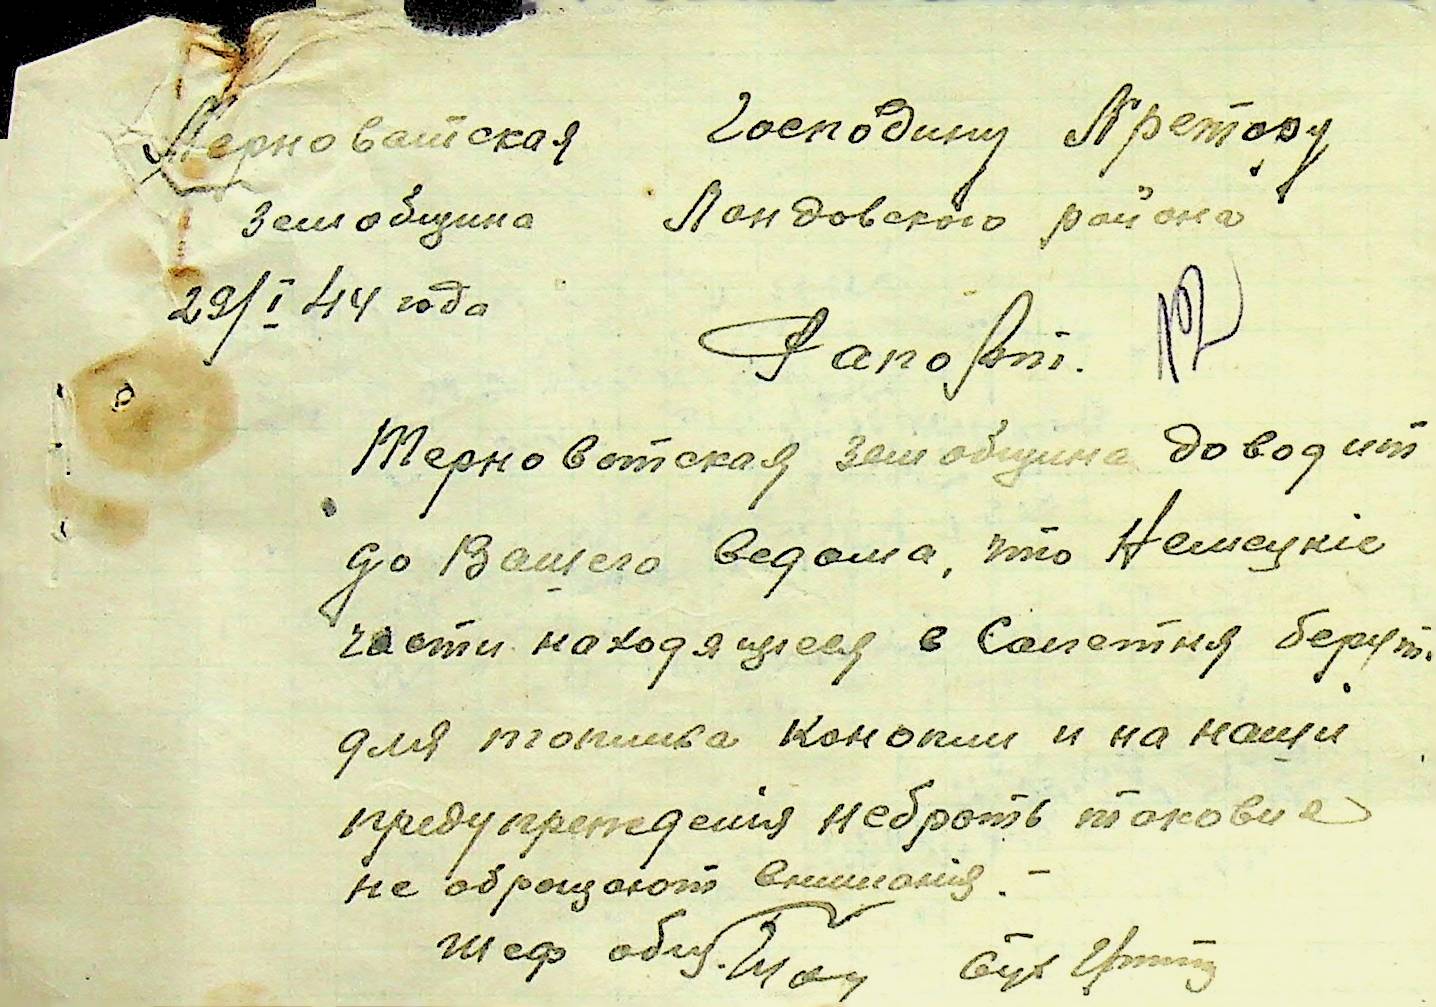 Терноватская
земобщина
29/I 44 года
Господину Претору
Ландовского района
Рапорт.
Терноватская земобщина доводит
до Вашего ведома, что Немецкіе
части находящиеся в Сапетня берут
для топлива конопли и на наши
предупреждения небрать таковые
не обращают вниманія. –
Шеф общ.
Бух